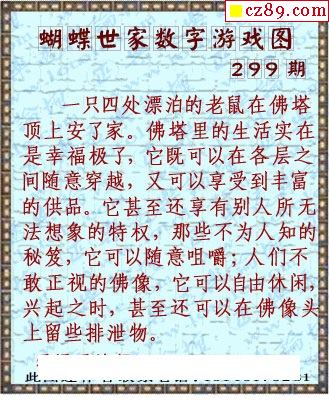 cz89.com
蝴蝶世家数字游戏图
299 期
一只四处漂泊的老鼠在佛塔
顶上安了家。佛塔里的生活实在
是幸福极了，它既可以在各层之
间随意穿越，又可以享受到丰富
的供品。它甚至还享有别人所无
法想象的特权，那些不为人知的
秘笈，它可以随意咀嚼；人们不
敢正视的佛像，它可以自由休闲，
兴起之时，甚至还可以在佛像头
上留些排泄物。
此